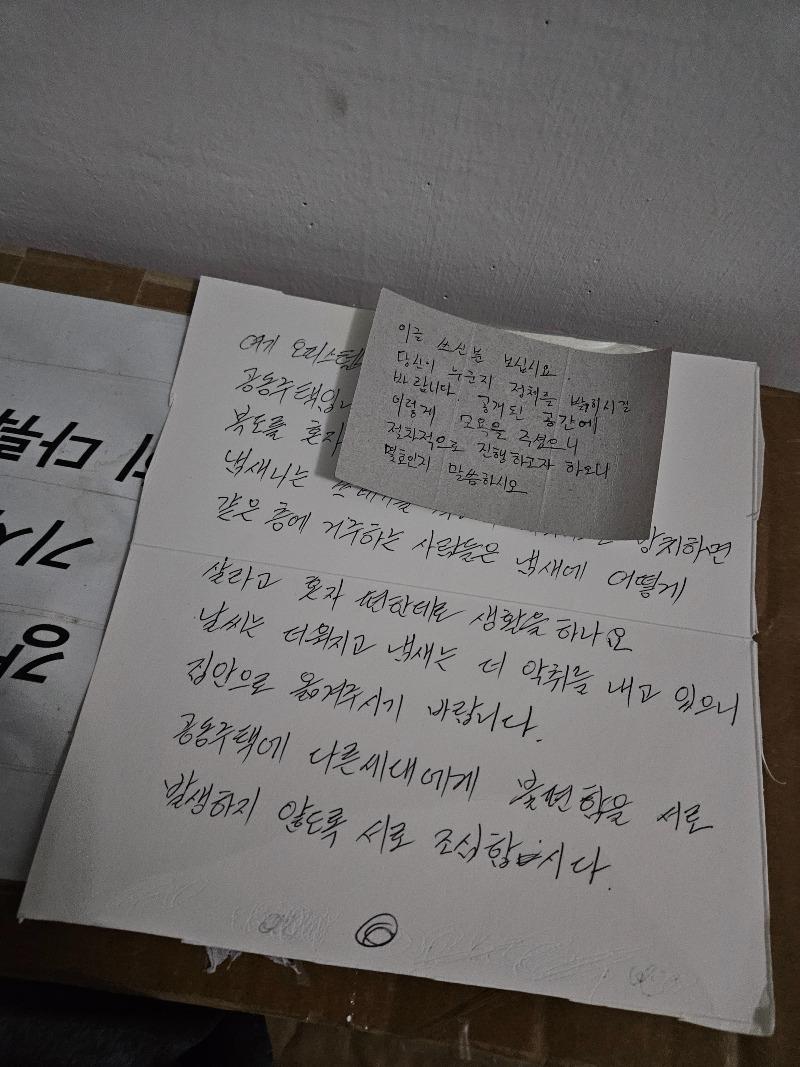 여기 오피스텔
공동주택입니
복도를 혼자
냄새나는 쓰레기를
방치하면
같은 층에 거주하는 사람들은 냄새에 어떻게
살라고 혼자 편한데로 생활을 하나요
날씨는 더워지고 냄새는 더 악취를 내고 있으니
집안으로 옮겨주시기 바랍니다.
공동주택에 다른세대에게 불편함을 서로
발생하지 않도록 서로 조심합시다.
이글 쓰신분 보십시요.
당신이 누군지 정체를 밝히시길
바랍니다. 공개된 공간에
이렇게 모욕을 주셨으니
절차적으로 진행하고자 하오니
몇호인지 말씀하시오